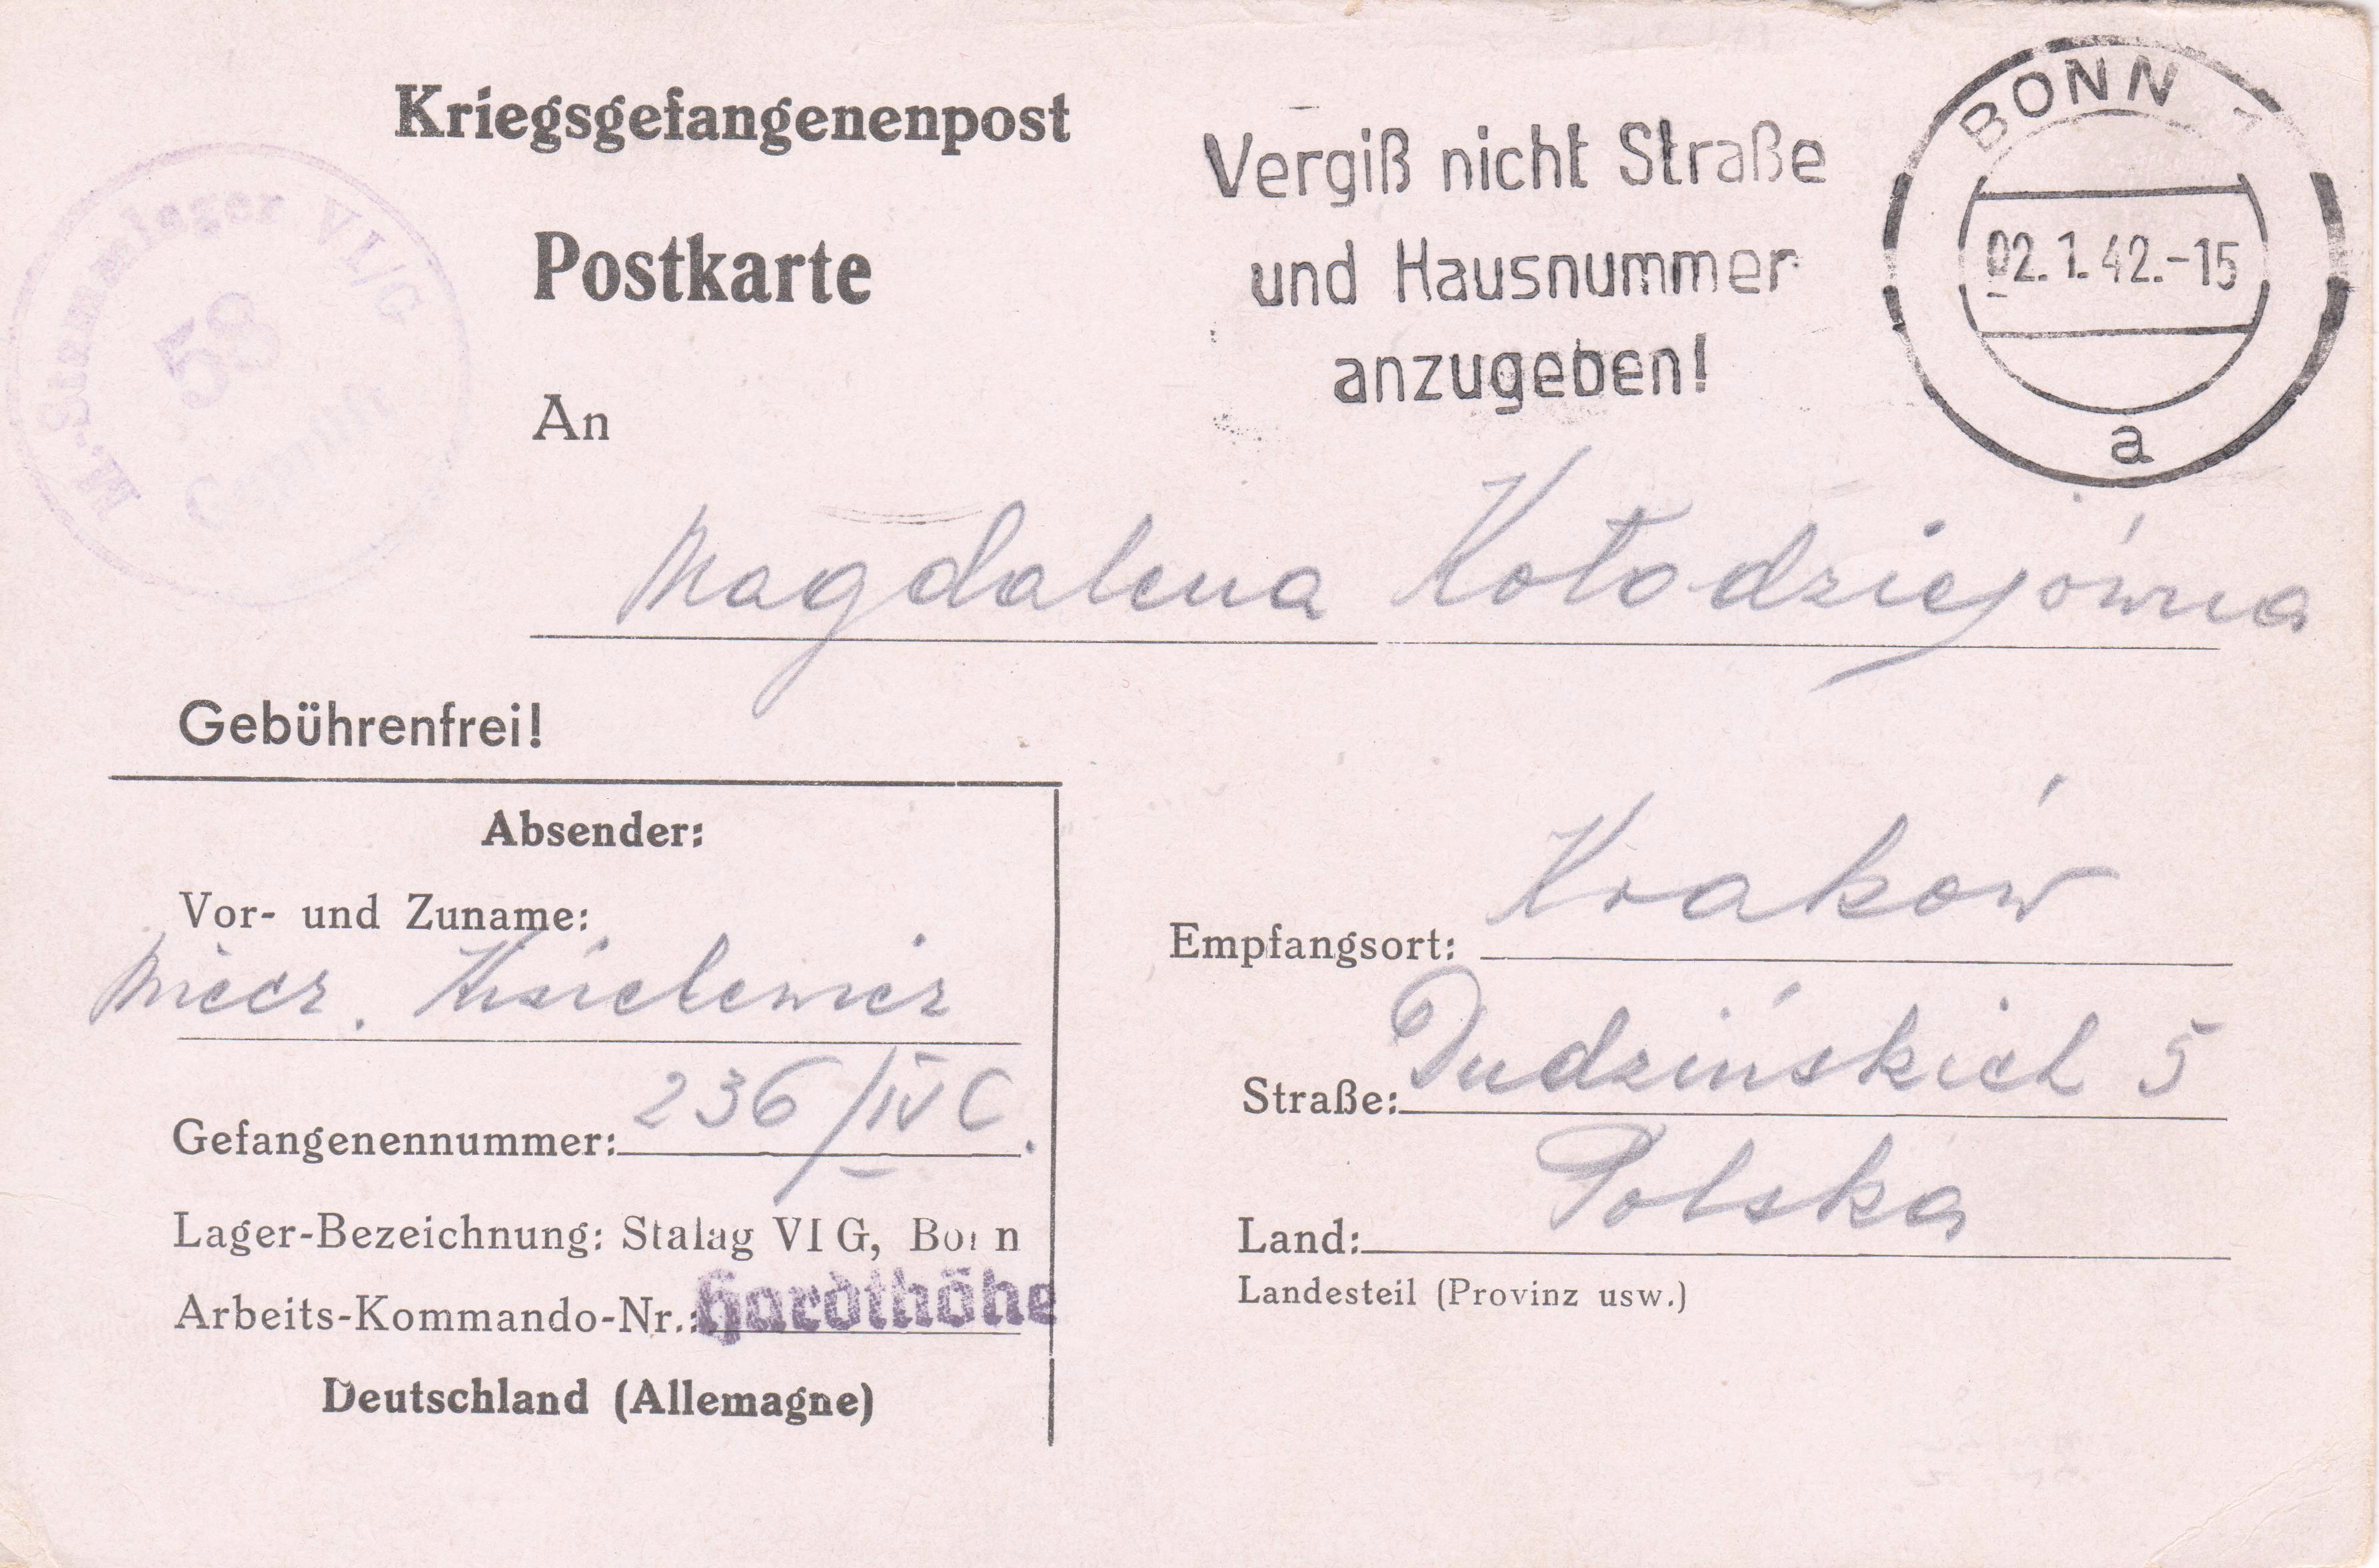 Kriegsgefangenenpost
Postkarte
M.-Stammlager VI/G
58
Geprüft
Vergiß nicht Straße
und Hausnummer
anzugeben!
BONN 1
02.1.42.-15
a
An
Magdalena Kołodziejówna
Gebührenfrei!
Absender:
Vor- und Zuname:
Miecz. Kisielewicz
Gefangenennummer: 236/IV C.
Lager-Bezeichnung: Stalag VI G, Bonn
Arbeits-Kommando-Nr.: Hardthöhe
Deutschland (Allemagne)
Empfangsort: Kraków
Straße: Dudzińskich 5
Land: Polska
Landesteil (Provinz usw.)